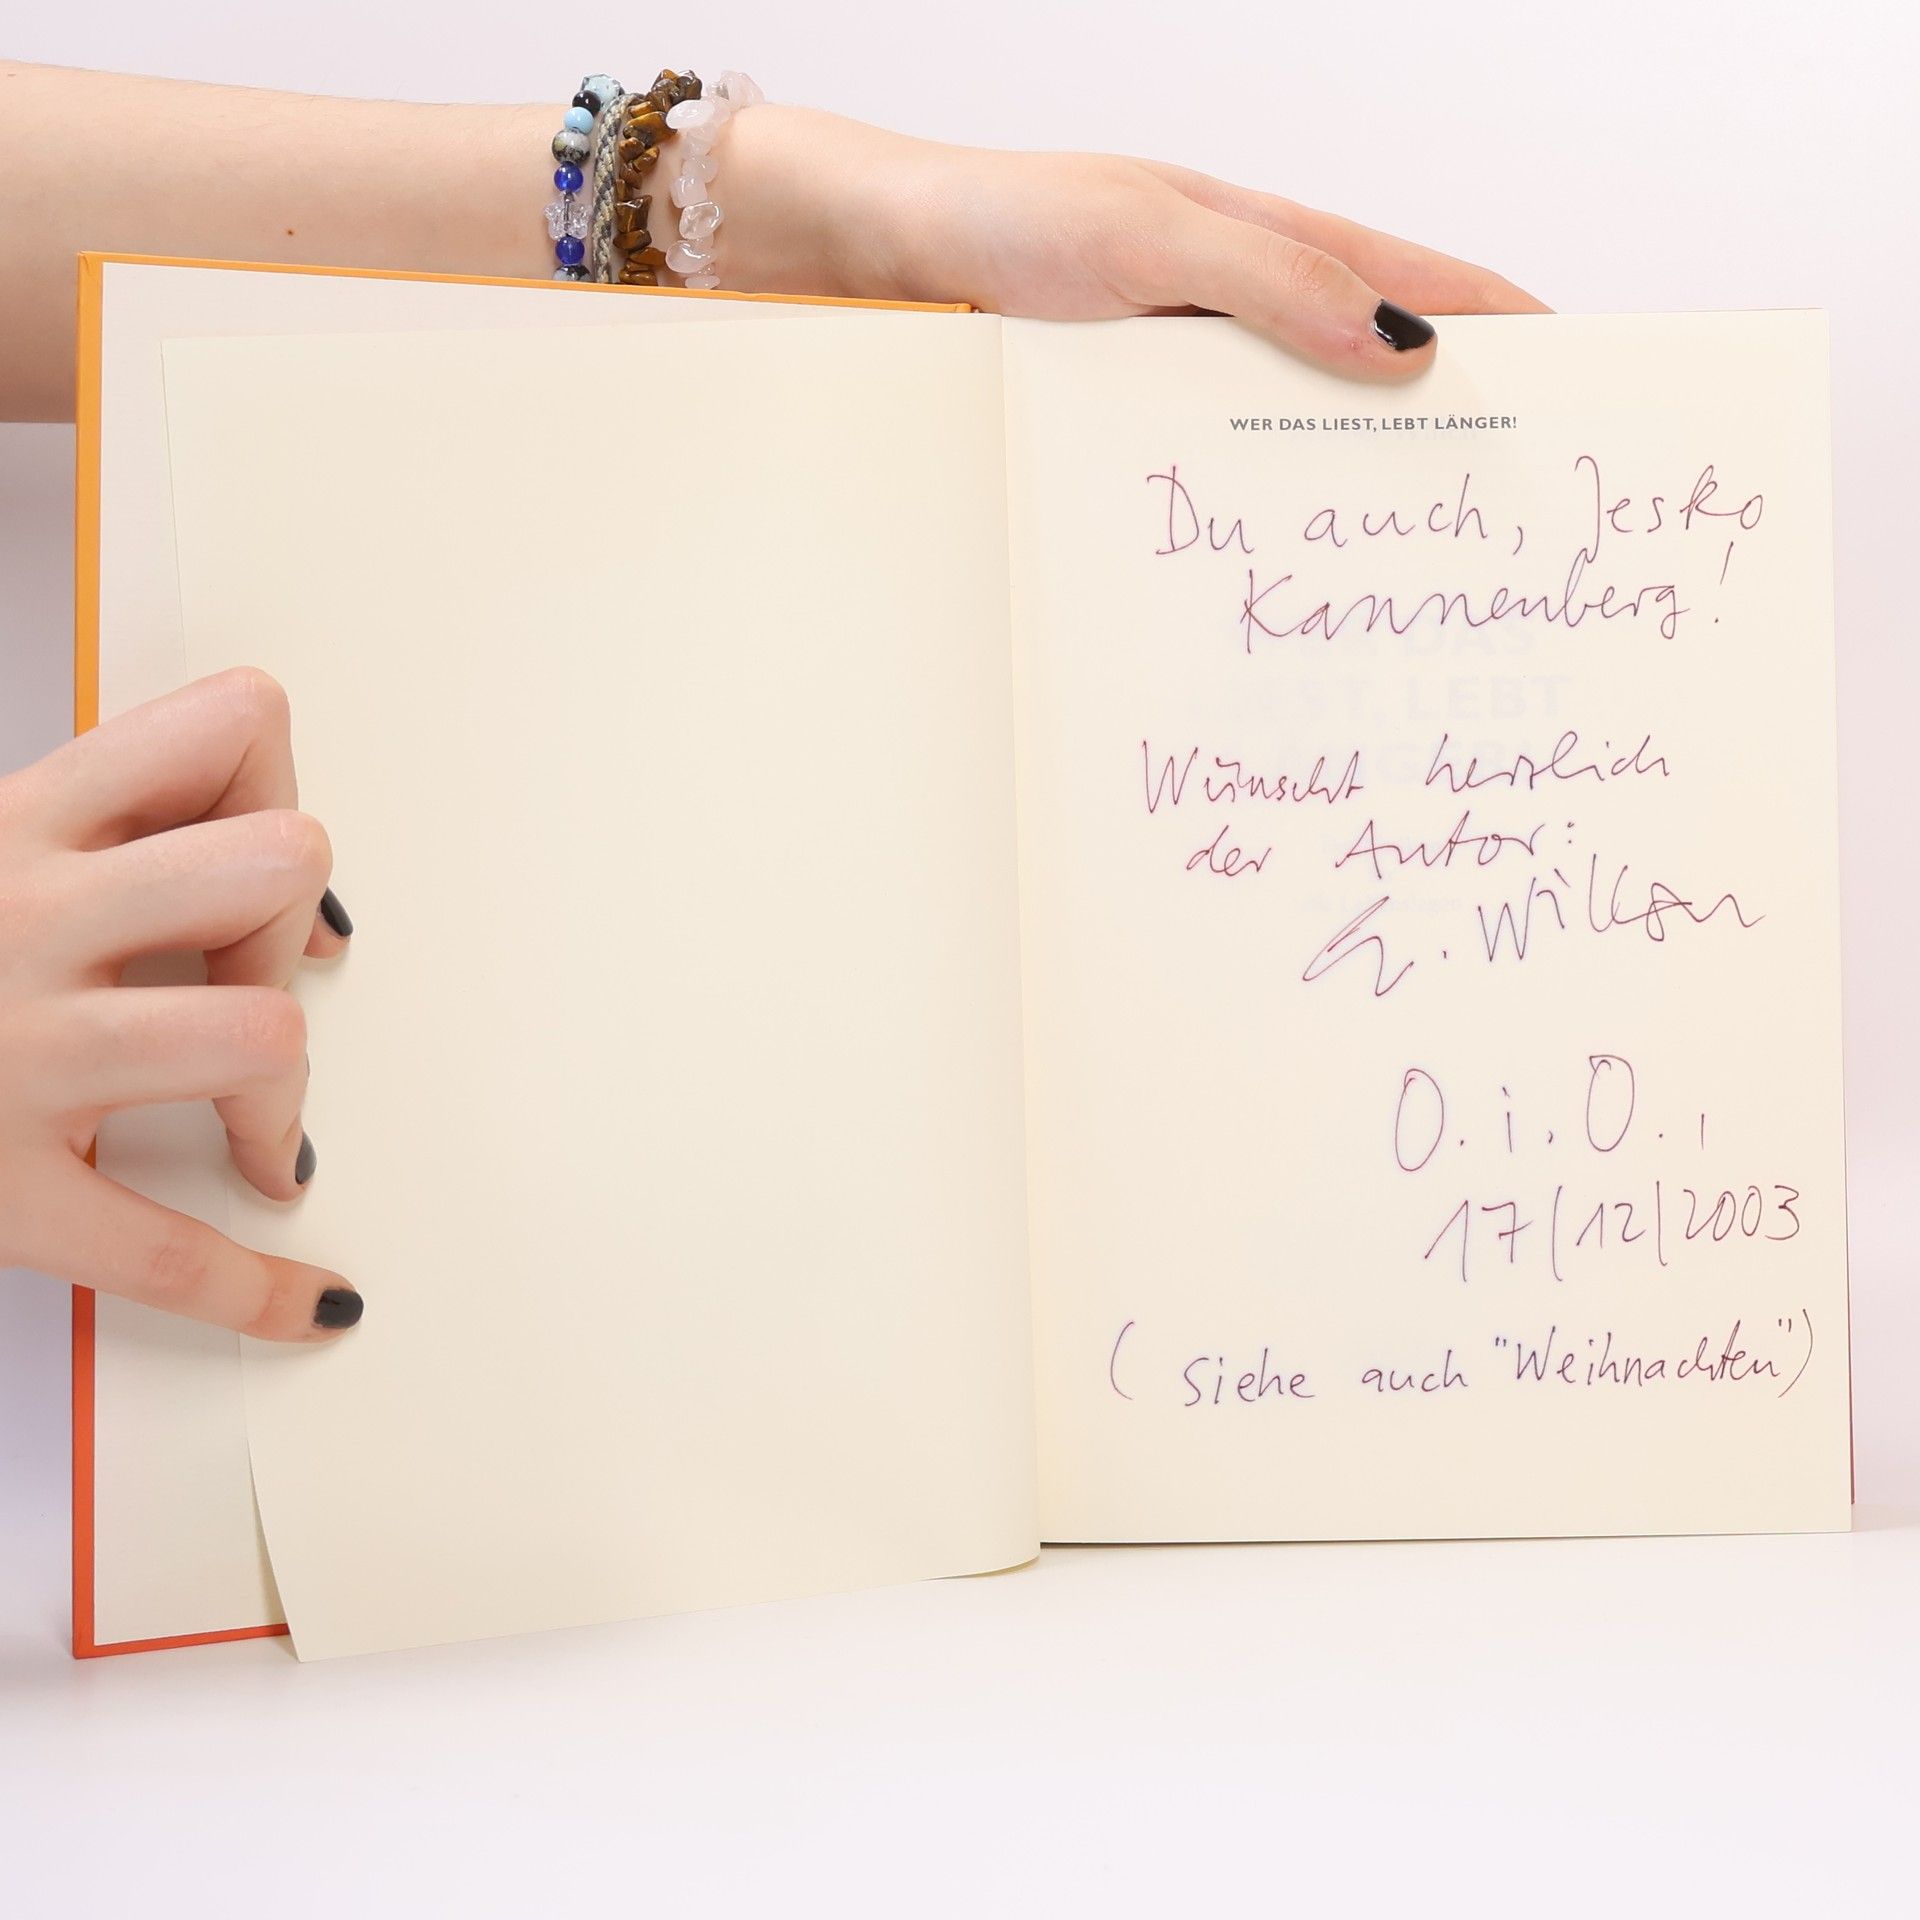 WER DAS LIEST, LEBT LÄNGER!
Du auch, Jesko
Kannenberg!
Wünscht herzlich
der Autor:
O.i.O.,
17/12/2003
(siehe auch "Weihnachten")